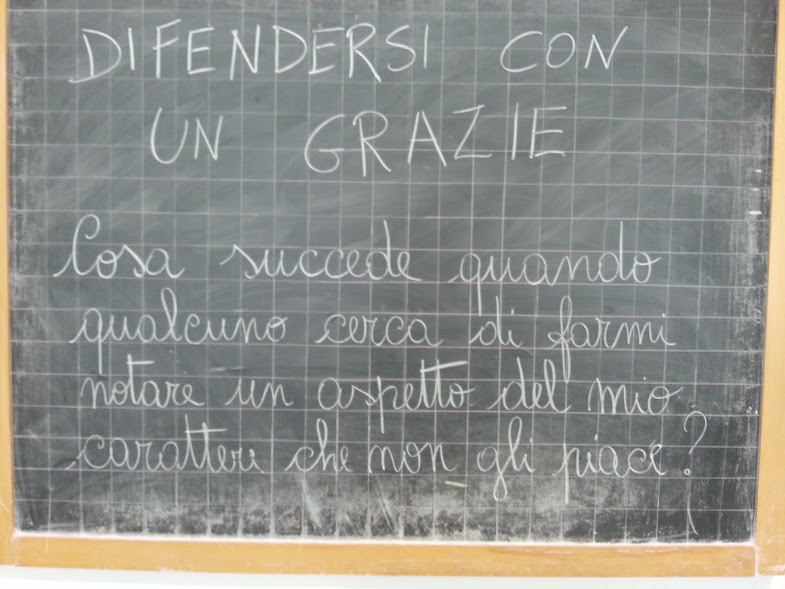 DIFENDERSI CON
UN GRAZIE
Cosa succede quando
qualcuno cerca di farmi
notare un aspetto del mio
carattere che non gli piace?